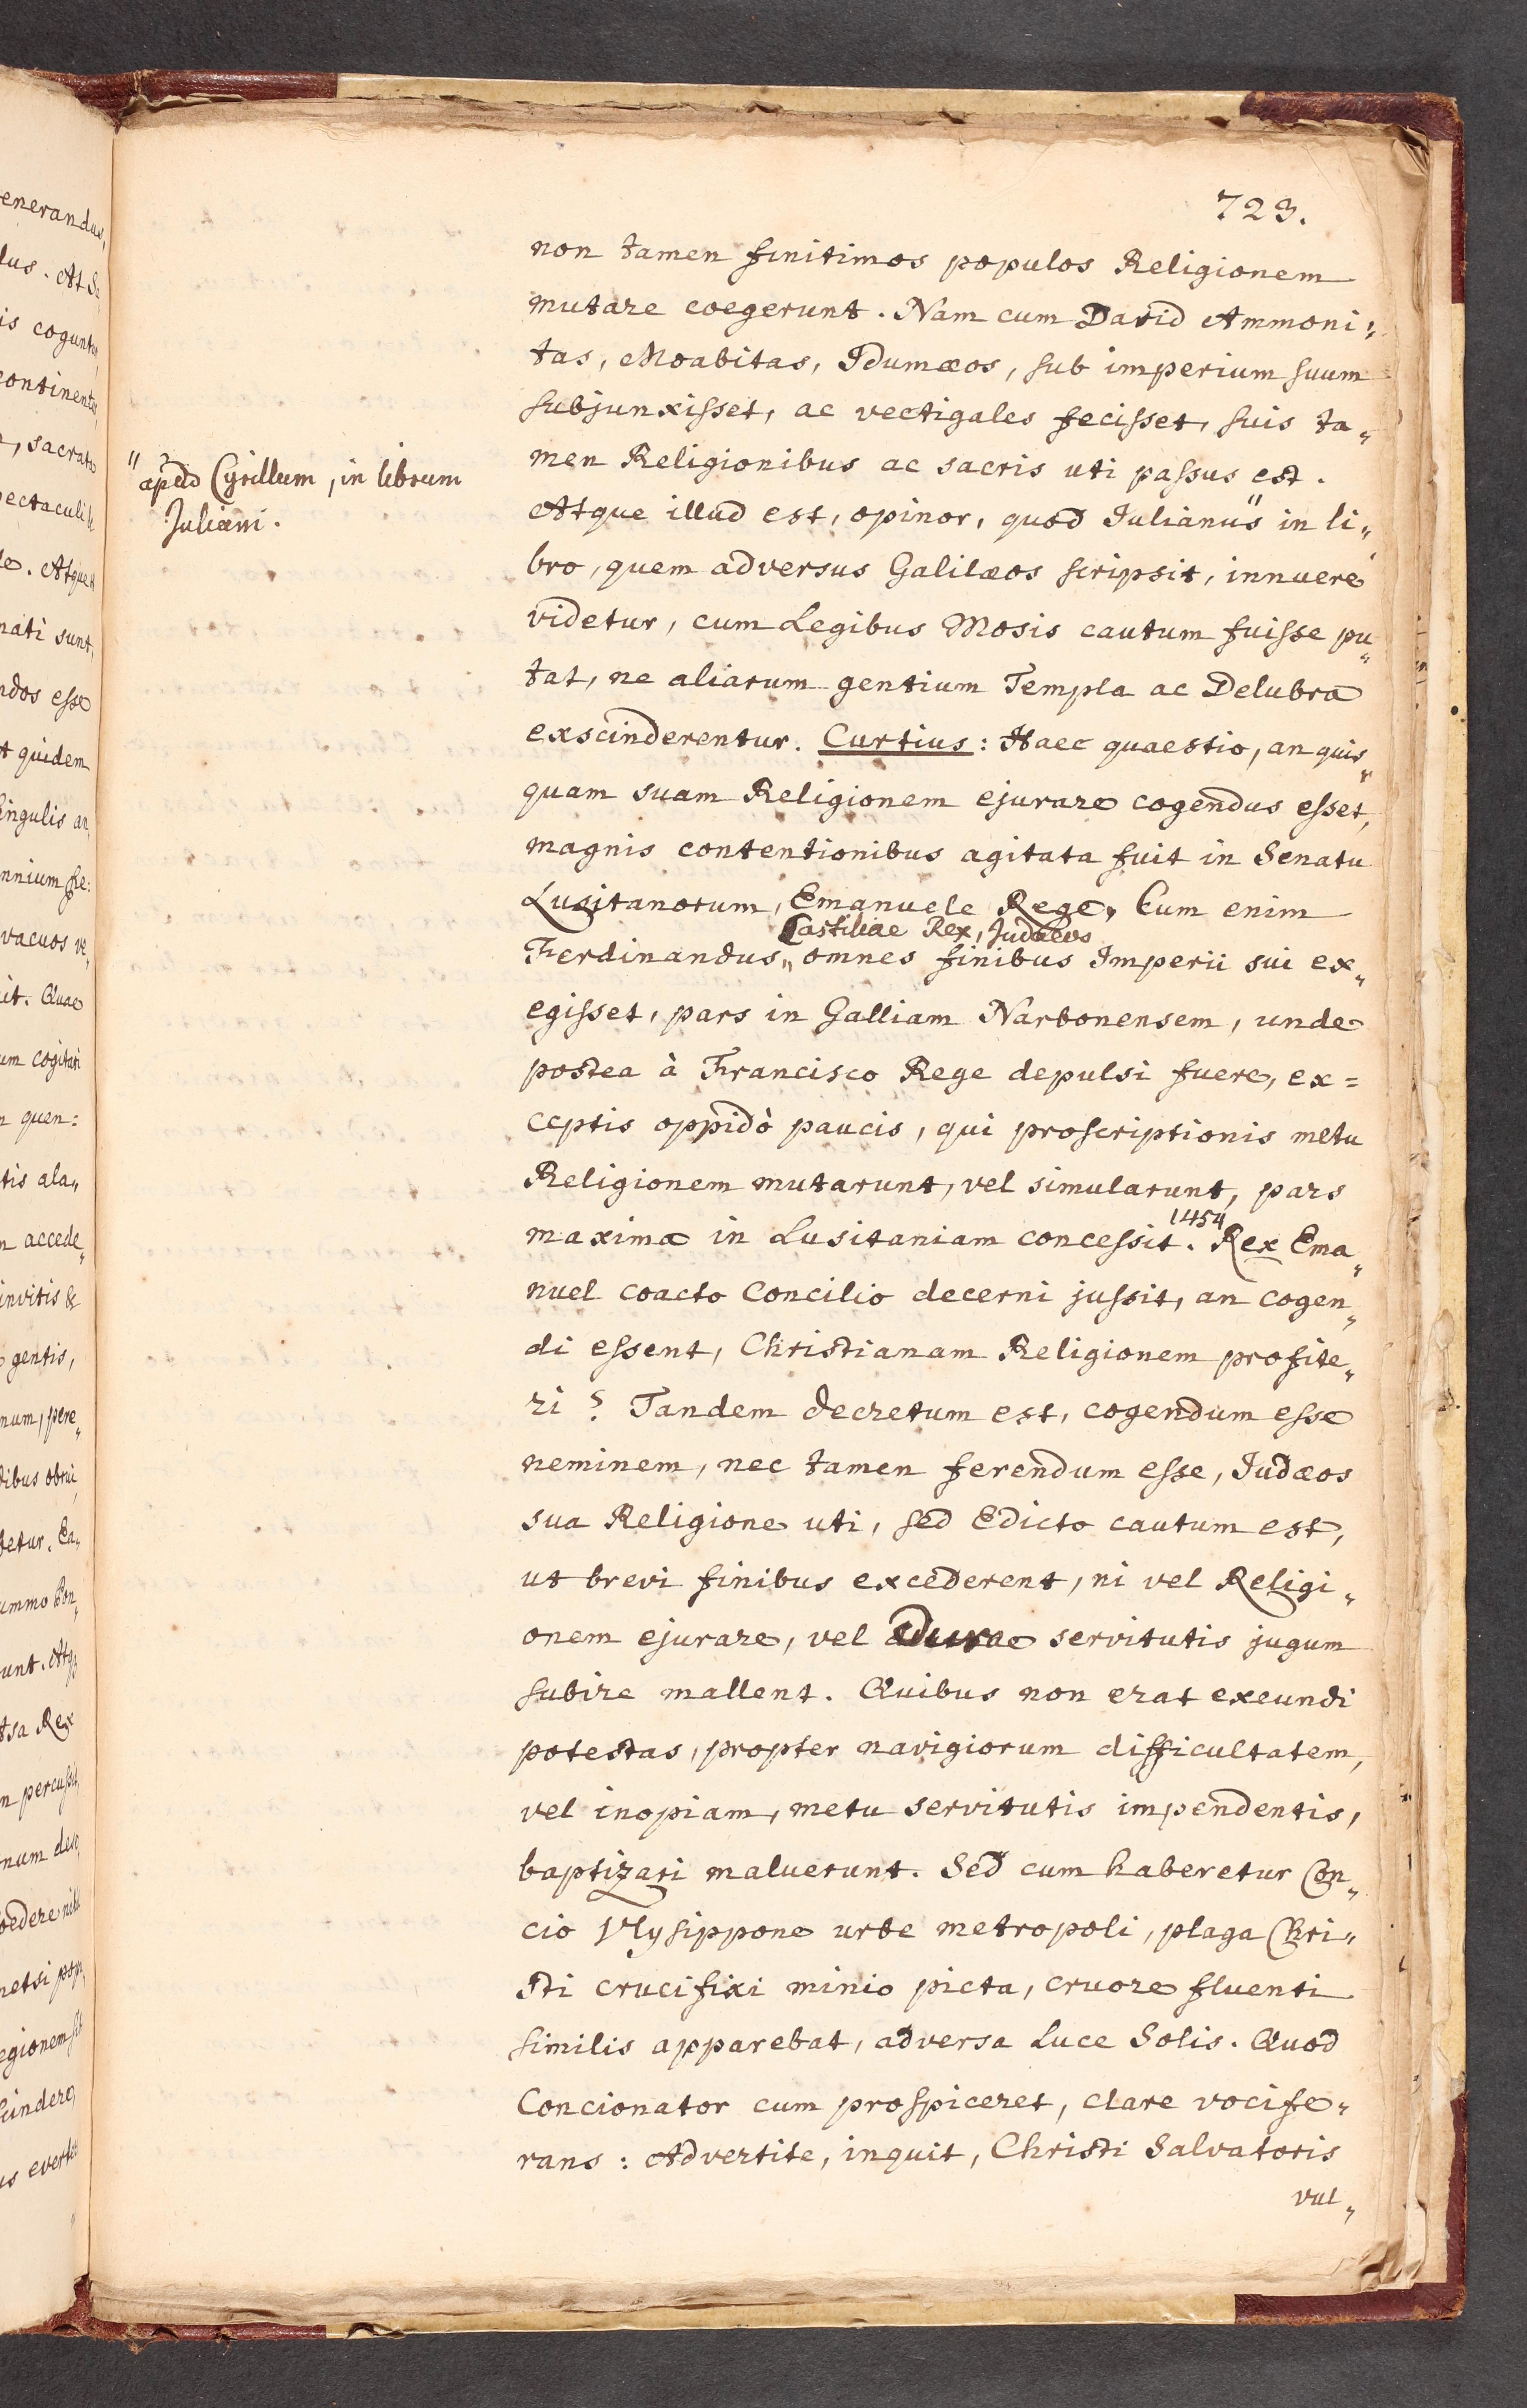 723.
non tamen finitimos populos Religionem
mutare coegerunt. Nam cum David Ammoni„
tas, Moabitas, Idumæos, sub imperium suum
subjunxisset, ac vectigales fecisset, suis ta„
men Religionibus ac sacris uti passus est.
"apud Cyrillum, in librum
Juliani.
Atque illud est, opinor, quod Iulianus" in li„
bro, quem adversus Galilæos scripsit, innuere
videtur, cum Legibus Mosis cautum fuisse pu„
tat, ne aliarum gentium Templa ac Delubra
exscinderentur. Curtius: Haec quaestio, an quis„
quam suam Religionem ejurare cogendus esset,
magnis contentionibus agitata fuit in Senatu
Lusitanorum, Emanuele Rege. Cum enim
Castiliae Rex, Judaeos
Ferdinandus„ omnes finibus Imperii sui ex„
egisset, pars in Galliam Narbonensem, unde
postea à Francisco Rege depulsi fuere, ex=
ceptis oppidò paucis, qui proscriptionis metu
Religionem mutarunt, vel simularunt, pars
1454
maxima in Lusitaniam concessit. Rex Ema„
nuel coacto Concilio decerni jussit, an cogen„
di essent, Christianam Religionem profite„
ri? Tandem decretum est, cogendum esse
neminem, nec tamen ferendum esse, Iudæos
sua Religione uti, sed Edicto cautum est,
ut brevi finibus excederent, ni vel Religi„
onem ejurare, vel durae servitutis jugum
subire mallent. Quibus non erat exeundi
potestas, propter navigiorum difficultatem,
vel inopiam, metu servitutis impendentis,
baptizari maluerunt. Sed cum haberetur Con„
cio Vlysippone urbe metropoli, plaga Chri„
sti crucifixi minio picta, cruore fluenti
similis apparebat, adversa Luce Solis. Quod
Concionator cum prospiceret, clare vocife„
rans: Advertite, inquit, Christi Salvatoris
vul„